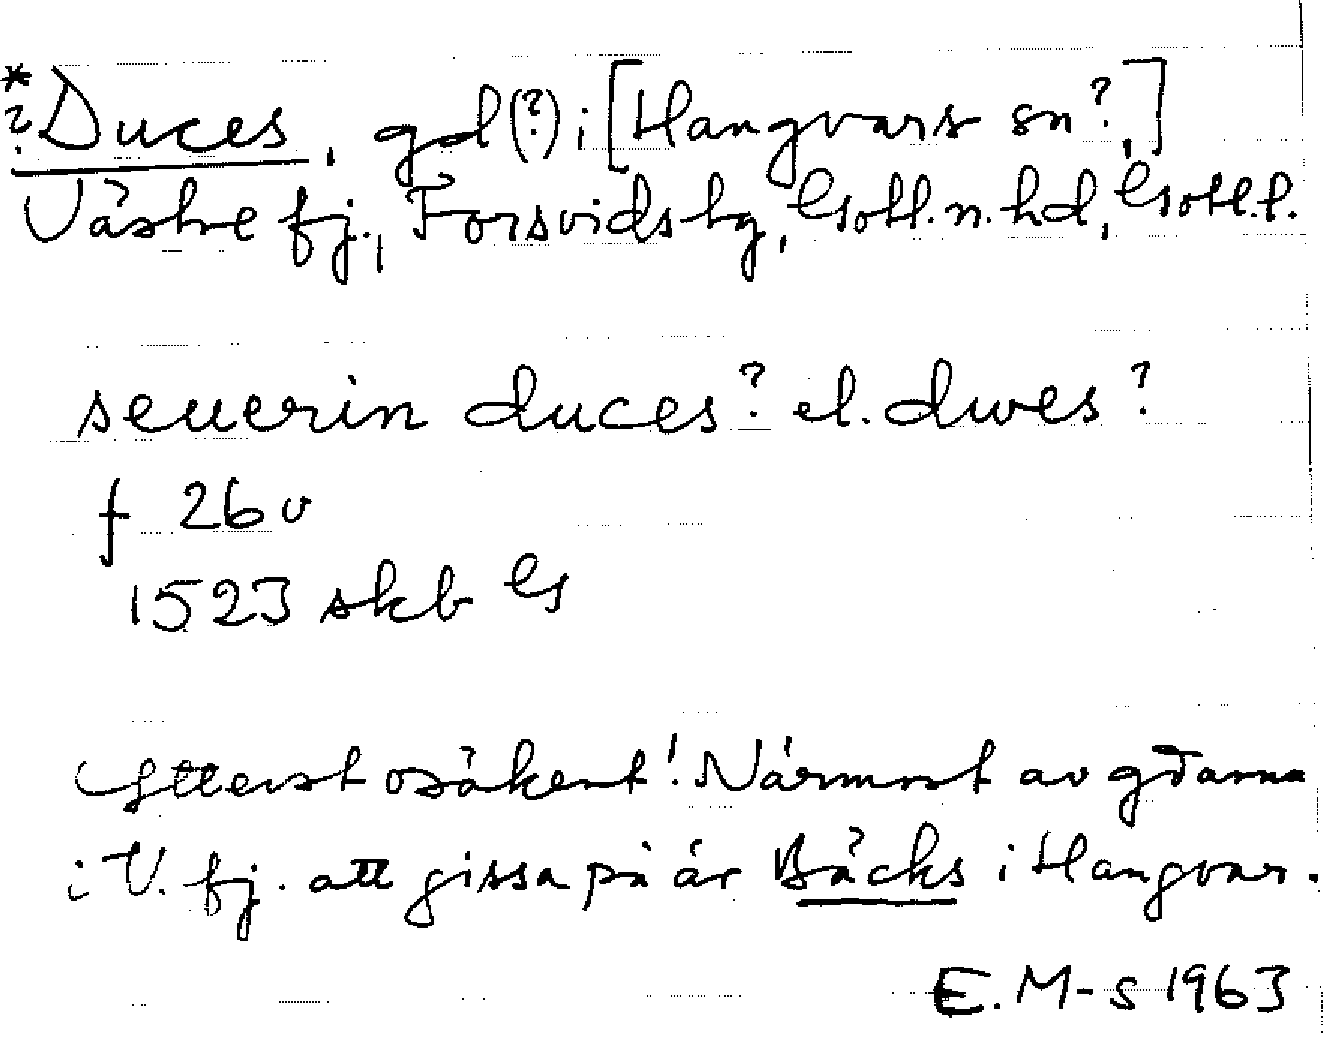 *?Duces, gd(?) i [Hangvars sn?,]
Västre fj., Forsvids tg, Gotl. n. hd, Gotl. l.
seuerin duces? el. dwes?
f 26 v
1523 skb G
Ytterst osäkert! Närmast av gdarna
i V. fj. att gissa på är Bäcks i Hangvar.
E. M-s 1963